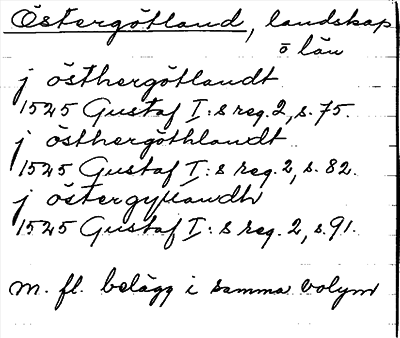 Östergötland, landskap
o län
j östhergötlandt
1525 Gustaf I:s reg. 2, s. 75.
j östhergöthlandt
1525 Gustaf I:s reg. 2, s. 82.
j östergyllandh
1525 Gustaf I:s reg. 2, s. 91.
m. fl. belägg i samma volym